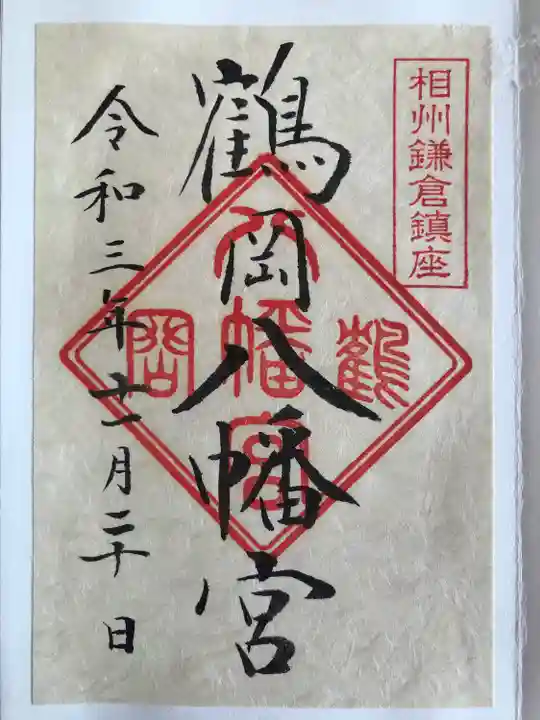 相州鎌倉鎮座
鶴岡八幡宮
鶴
八幡宮
岡
令和三年十一月二十日